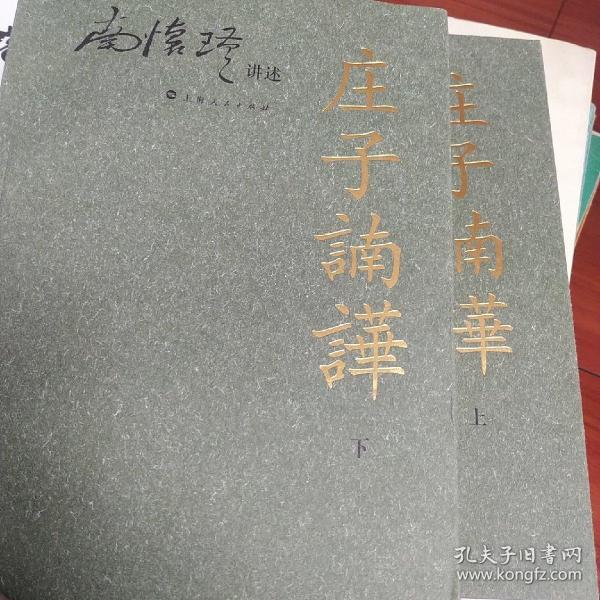 南怀瑾 讲述
上海人民出版社
庄子諵譁
下
庄子南華
上
孔夫子旧书网
www.kongfz.com